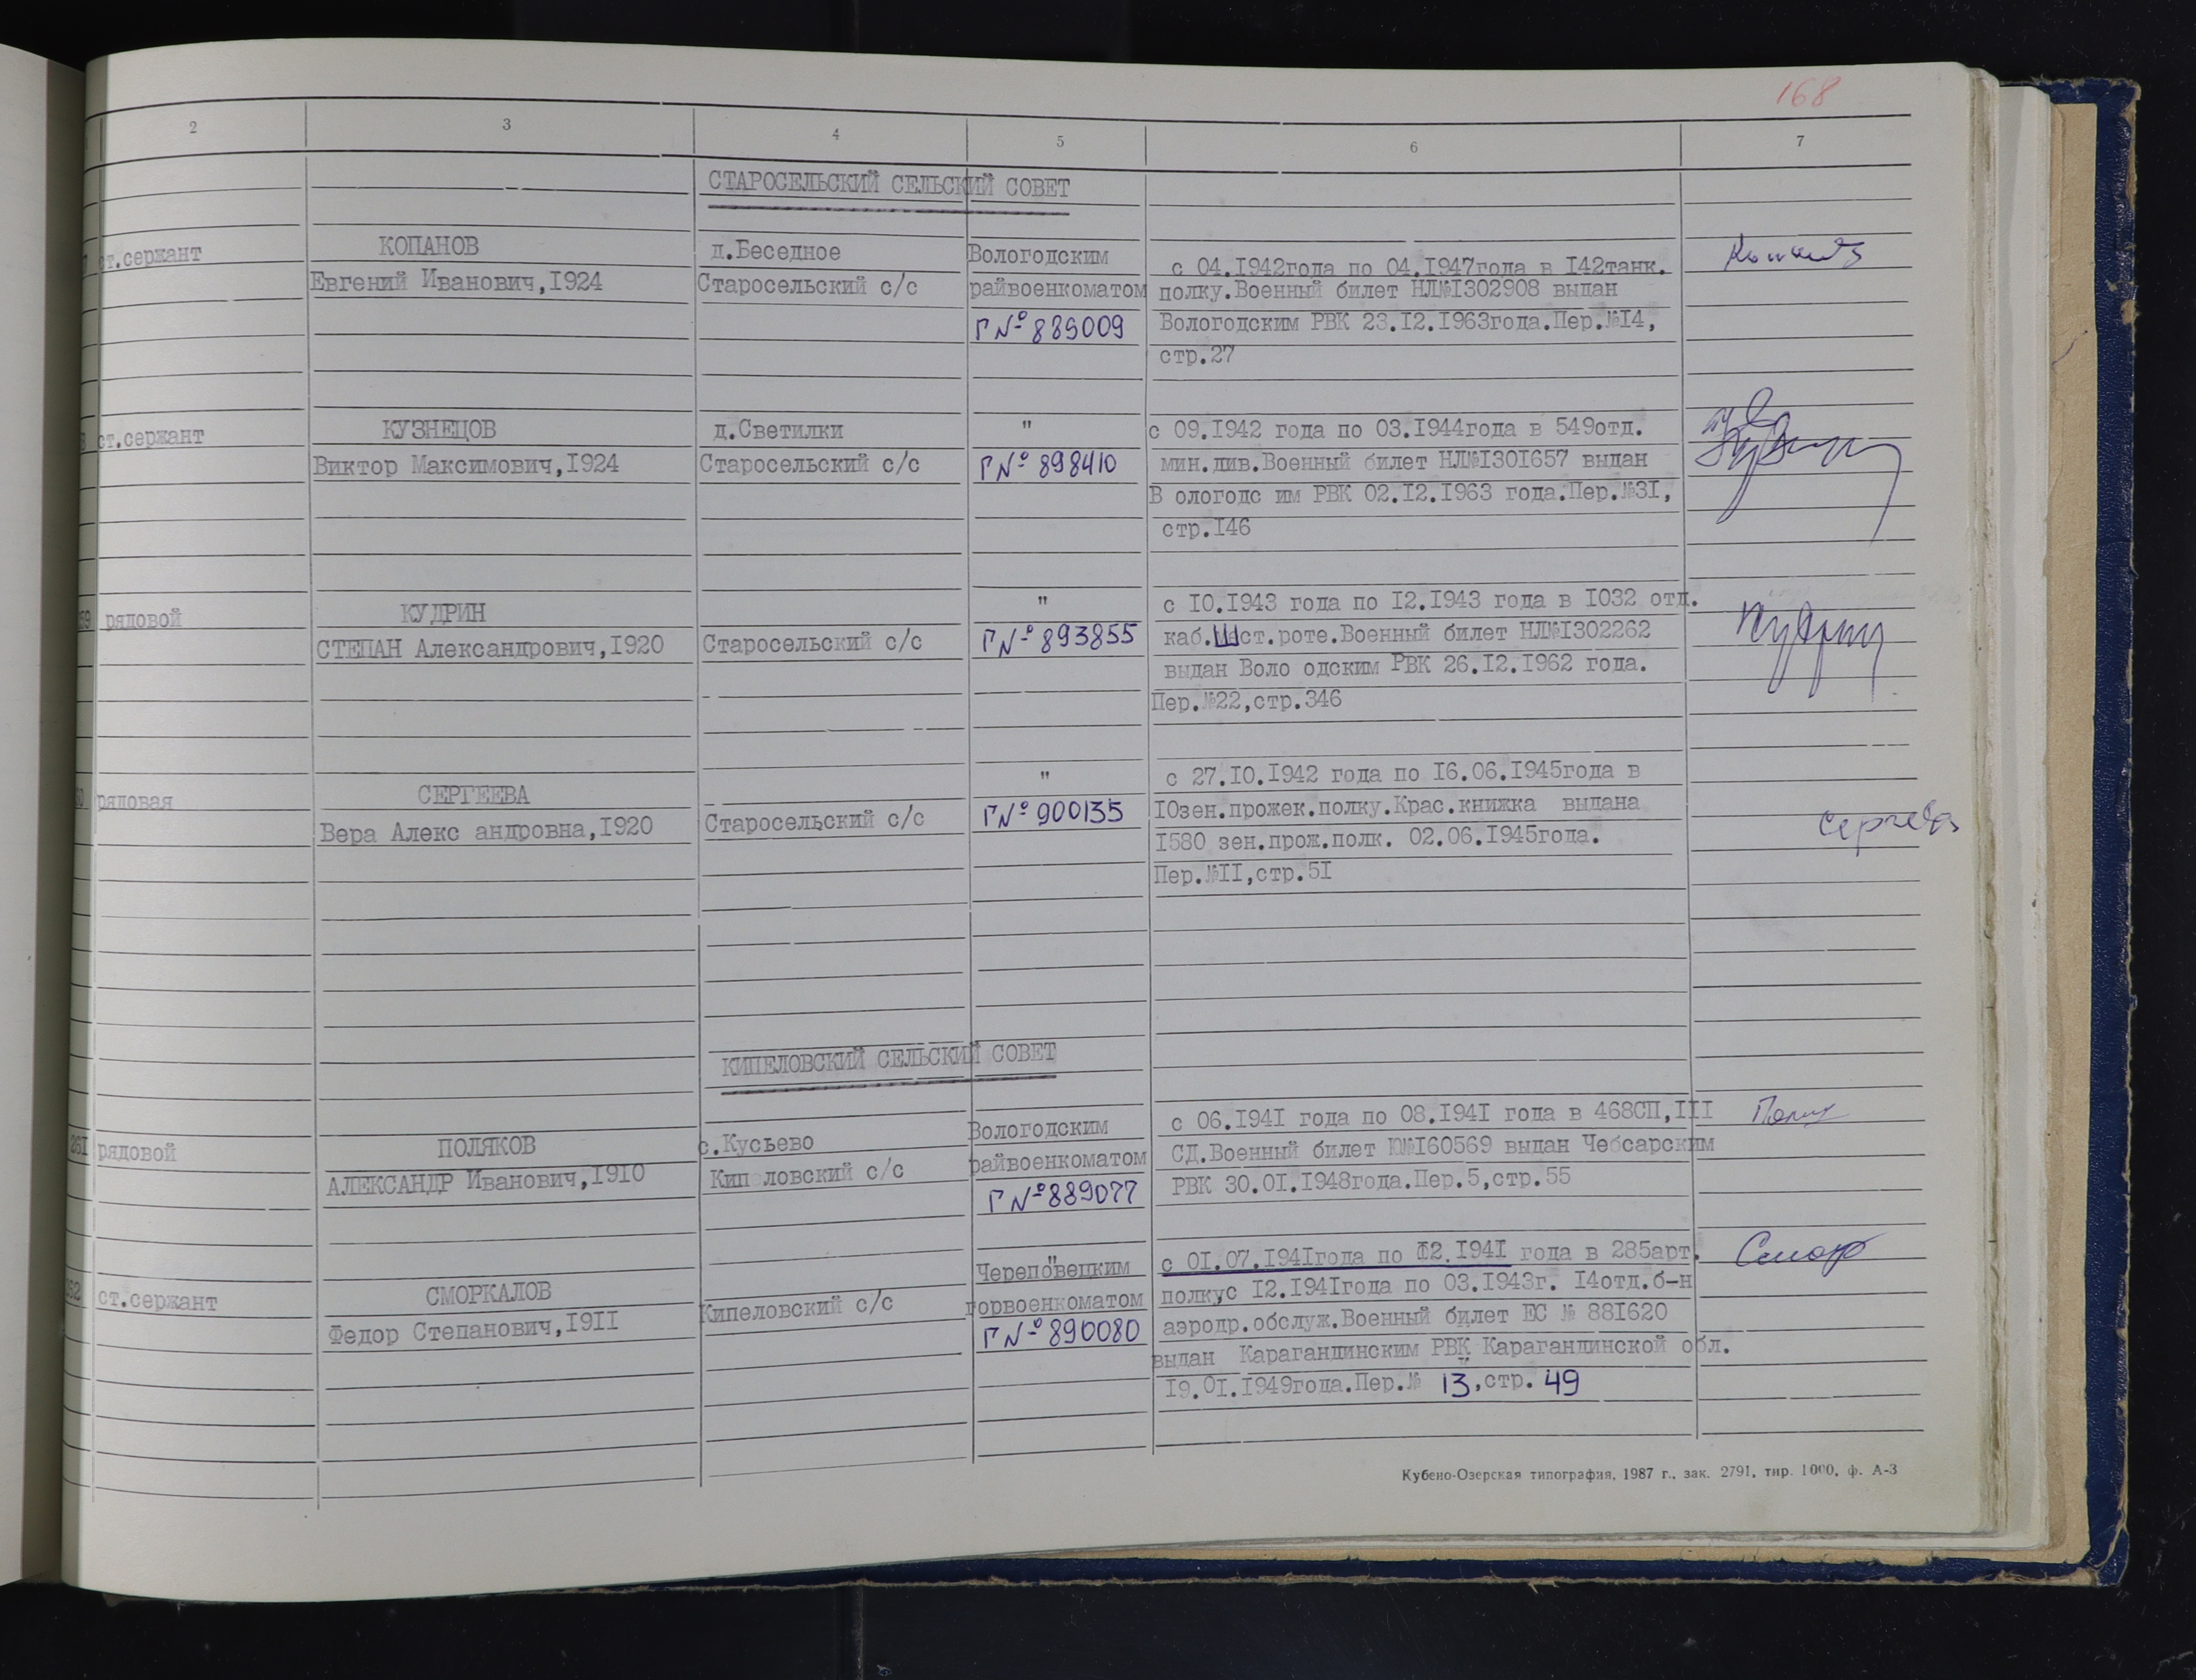 168
2 3 4 5 6 7
СТАРОСЕЛЬСКИЙ СЕЛЬСКИЙ СОВЕТ
ст.сержант
КОПАНОВ
Евгений Иванович,I924
д.Беседное
Старосельский с/с
Вологодским
райвоенкоматом
Г № 889009
с 04.I942года по 04.I947года в I42танк.
полку.Военный билет НЛ№I302908 выдан
Вологодским РВК 23.I2.I963года.Пер.№I4,
стр.27
ст.сержант
КУЗНЕЦОВ
Виктор Максимович,I924
д.Светилки
Старосельский с/с
"
Г № 898410
с 09.I942 года по 03.I944года в 549отд.
мин.див.Военный билет НЛ№I30I657 выдан
В ологодс им РВК 02.I2.I963 года.Пер.№3I,
стр.I46
59 рядовой
КУДРИН
СТЕПАН Александрович,I920
Старосельский с/с
"
Г № 893855
с I0.I943 года по I2.I943 года в I032 отд.
каб.Шест.роте.Военный билет НЛ№I302262
выдан Воло одским РВК 26.I2.I962 года.
Пер.№22,стр.346
Кудрин
60 рядовая
СЕРГЕЕВА
Вера Алекс андровна,I920
Старосельский с/с
"
Г № 900135
с 27.I0.I942 года по I6.06.I945года в
I0зен.прожек.полку.Крас.книжка выдана
I580 зен.прож.полк. 02.06.I945года.
Пер.№II,стр.5I
Сергеева
КИПЕЛОВСКИЙ СЕЛЬСКИЙ СОВЕТ
26I рядовой
ПОЛЯКОВ
АЛЕКСАНДР Иванович,I9I0
с.Кусьево
Кип ловский с/с
Вологодским
райвоенкоматом
Г № 889077
с 06.I94I года по 08.I94I года в 468СП,III
СД.Военный билет Ю№I60569 выдан Чебсарским
РВК 30.0I.I948года.Пер.5,стр.55
262 ст.сержант
СМОРКАЛОВ
Федор Степанович,I9II
Кипеловский с/с
"
Череповецким
горвоенкоматом
Г № 890080
с 0I.07.I94Iгода по I2.I94I года в 285арт.
полкус I2.I94Iгода по 03.I943г. I4отд.б-н
аэродр.обслуж.Военный билет ЕС № 88I620
выдан Карагандинским РВК Карагандинской обл.
I9.0I.I949года.Пер.№ 13,стр. 49
Смор
Кубено-Озерская типография, 1987 г., зак. 2791, тир. 1000, ф. А-3